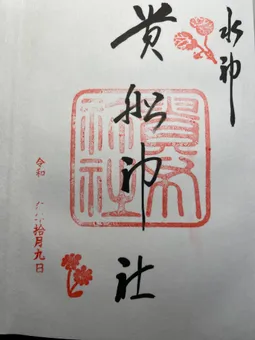 水神
貴船神社
貴船神社
令和 拾月九日